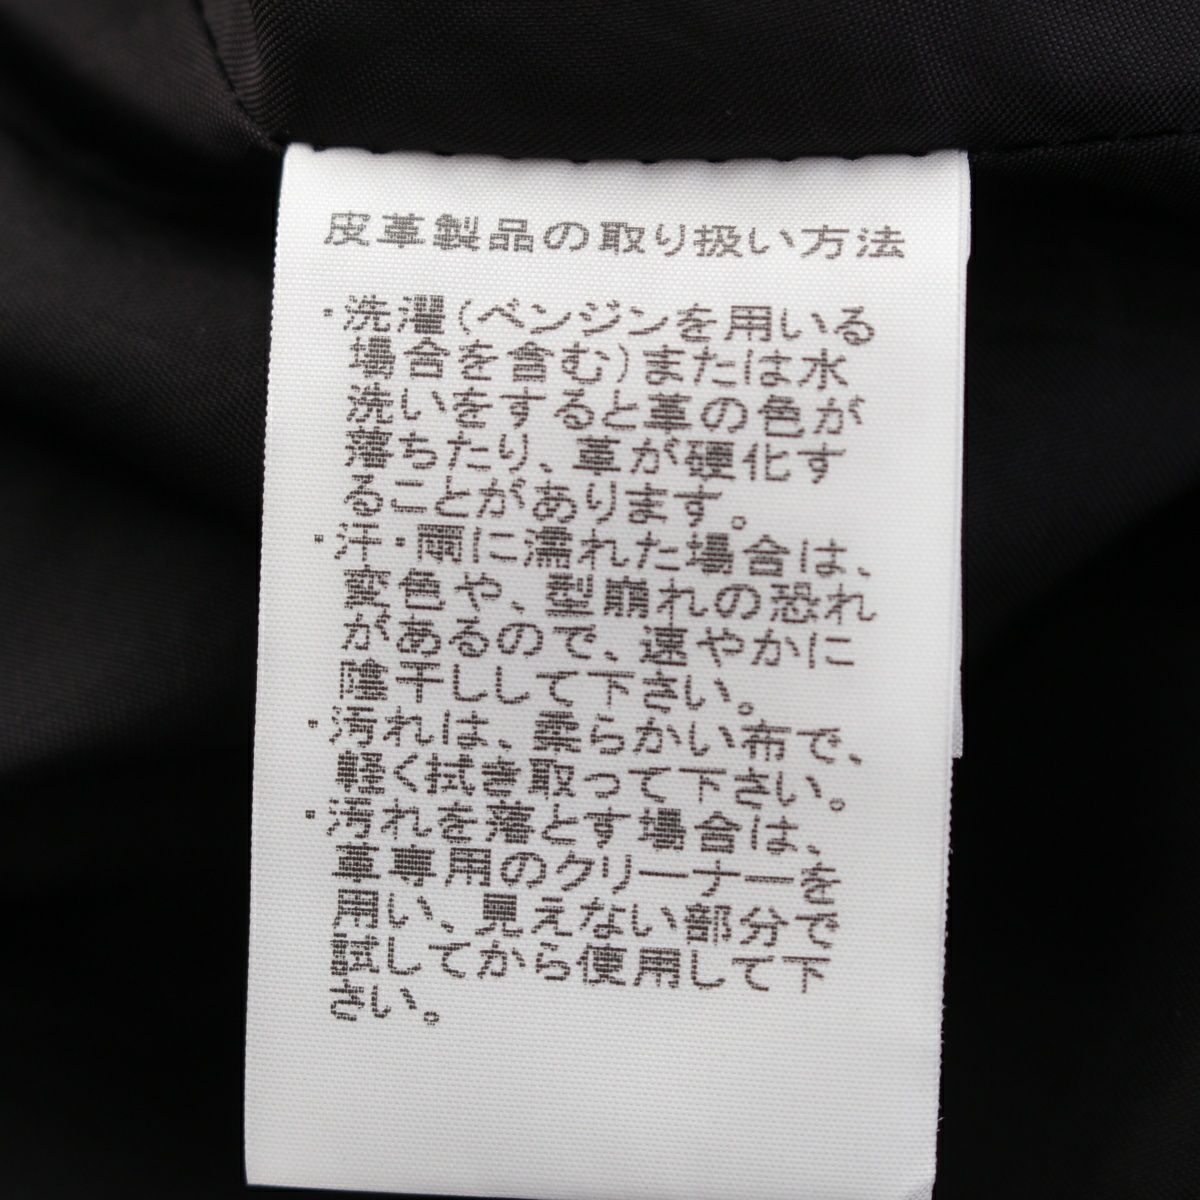 皮革製品の取り扱い方法
・洗濯(ベンジンを用いる
場合を含む)または水
洗いをすると革の色が
落ちたり、革が硬化す
ることがあります。
・汗・雨に濡れた場合は、
変色や、型崩れの恐れ
があるので、速やかに
陰干しして下さい。
・汚れは、柔らかい布で、
軽く拭き取って下さい。
・汚れを落とす場合は、
革専用のクリーナーを
用い、見えない部分で
試してから使用して下
さい。